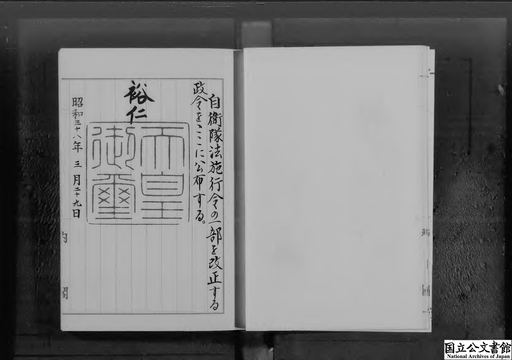 自衛隊法施行令の一部を改正する
政令をここに公布する。
裕仁
天皇
御璽
昭和三十八年三月二十九日
内閣
国立公文書館
National Archives of Japan